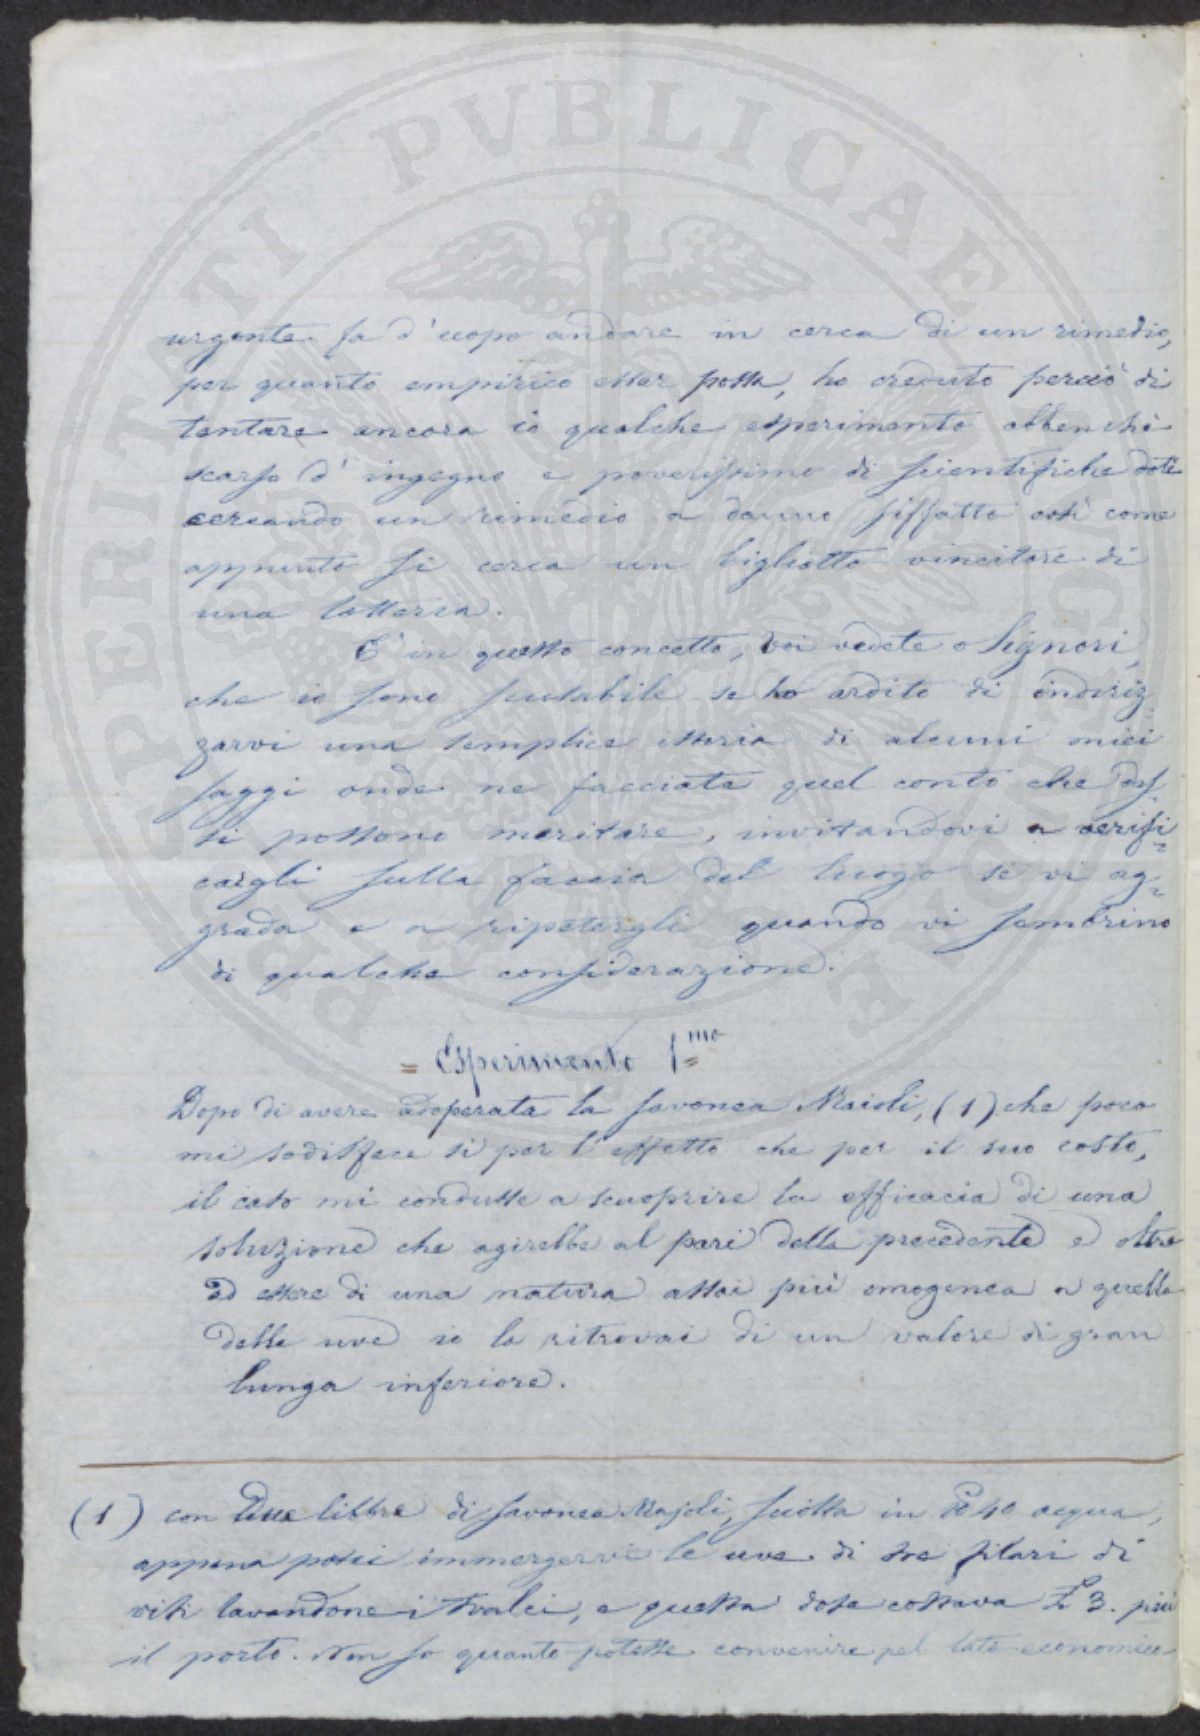 PROSPERITATI PVBLICAE
urgente fa d'uopo andare in cerca di un rimedio,
per quanto empirico esser possa, ho creduto perciò di
tentare ancora io qualche esperimento abbenchè
scarso d'ingegno e poverissimo di scientifiche doti
cercando un rimedio a danno siffatto così come
appunto si cerca un biglietto vincitore di
una lotteria.
E' in questo concetto, voi vedete o Signori,
che io sono scusabile se ho ardito di indiriz=
zarvi una semplice storia di alcuni miei
saggi onde ne facciate quel conto che des=
si possono meritare, invitandovi a verifi=
cargli sulla faccia del luogo se vi ag=
grada e a ripetergli quando vi sembrino
di qualche considerazione.
= Esperimento 1.mo =
Dopo di avere adoperata la savonea Maioli, (1) che poco
mi sodisfece sì per l'effetto che per il suo costo,
il caso mi condusse a scuoprire la efficacia di una
soluzione che agirebbe al pari della precedente e oltre
ad essere di una natura assai più omogenea a quella
delle uve io la ritrovai di un valore di gran
lunga inferiore.
(1) con Due libbre di savonea Majoli, sciolta in 40 acqua,
appena potei immergervi le uve di tre filari di
viti lavandone i tralci, e questa dose costava £ 3. più
il porto. Non so quanto potesse convenire pel lato economico